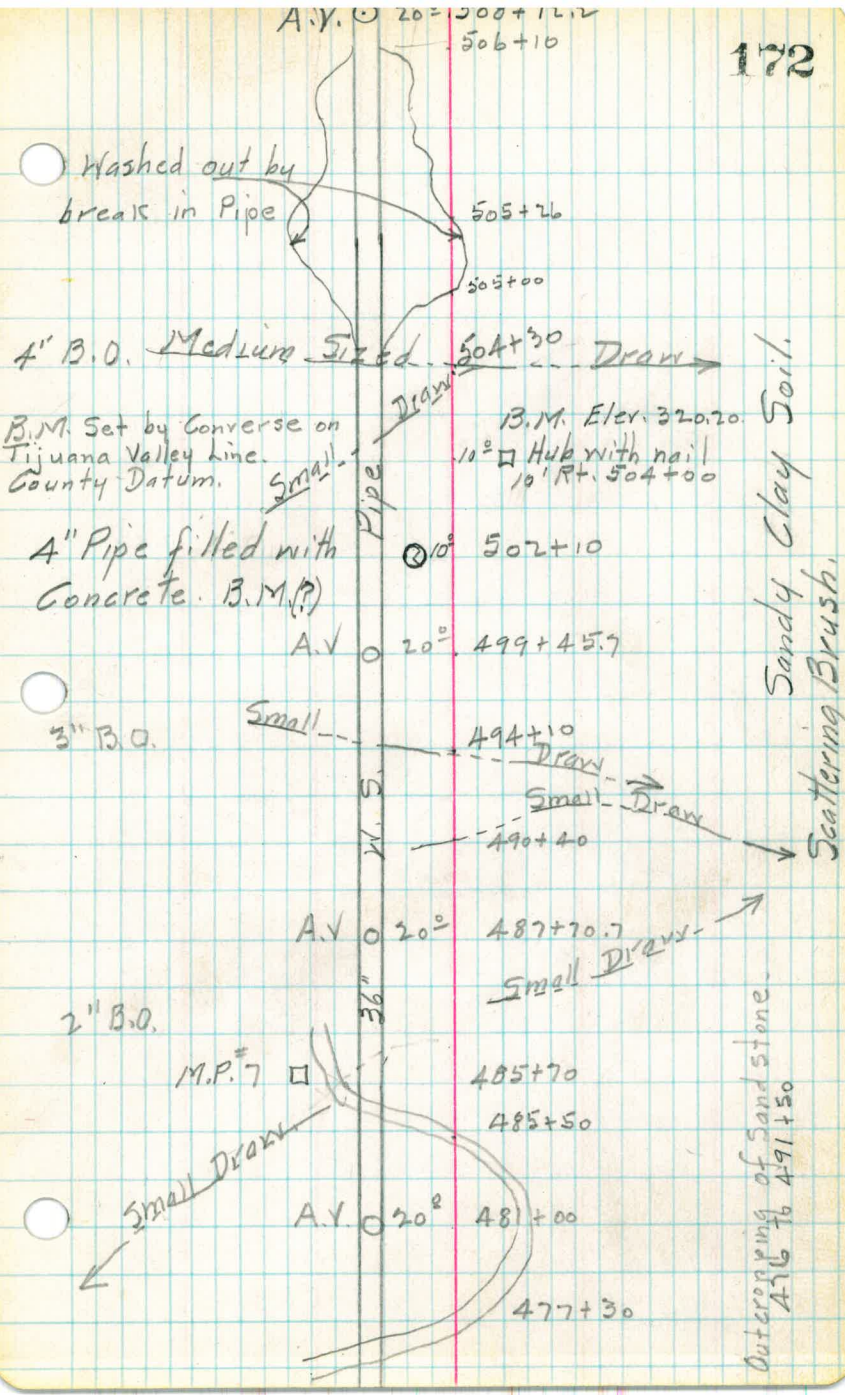 A.V. 20= 506+12.2
506+10
172
Washed out by
break in Pipe
505+26
505+00
4" B.O. Medium Sized 504+30 Draw
Small Draw
B.M. Set by Converse on
Tijuana Valley Line.
County Datum.
B.M. Elev. 320.20
10° Hub with nail
10' Rt. 504+00
4" Pipe filled with
Concrete. B.M.(?)
10° 502+10
A.V 20° 499+45.7
3" B.O.
Small 494+10 Draw
Small Draw
490+40
A.V 20° 487+70.7
Small Draw
2" B.O.
M.P.#7
485+70
485+50
Small Draw
A.V. 20° 481+00
477+30
36" W. S. Pipe
Sandy Clay Soil.
Scattering Brush.
Outcropping of Sandstone.
476 to 491+50